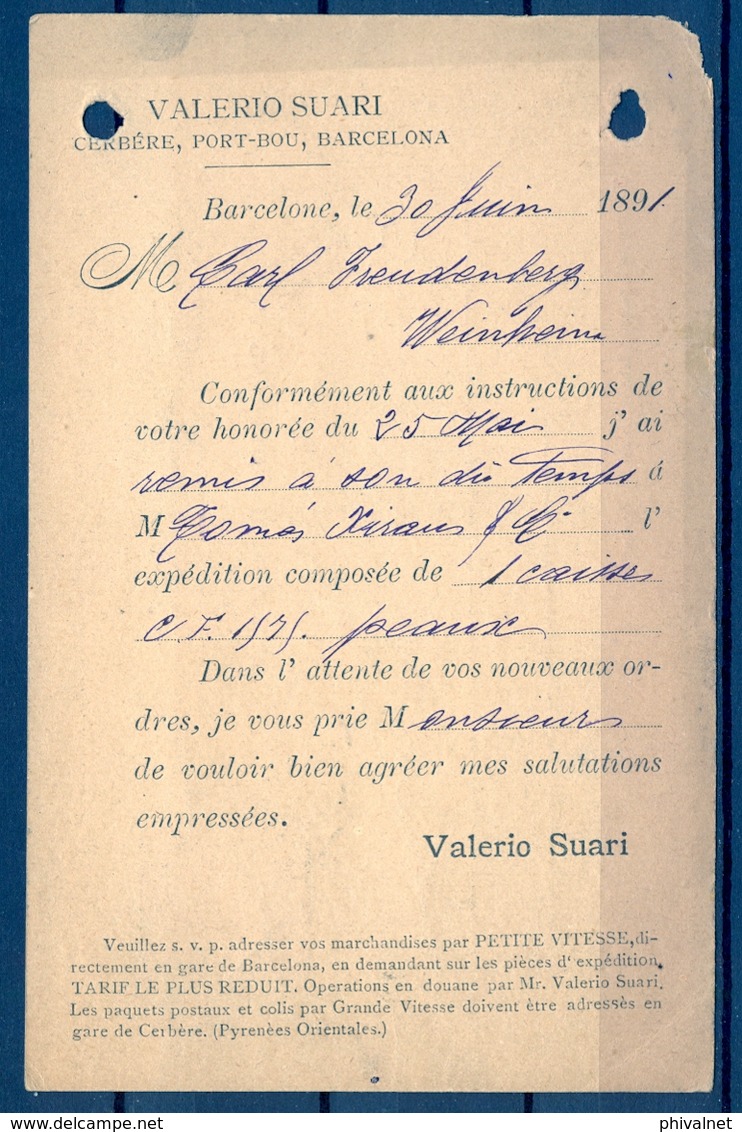 VALERIO SUARI
CERBÉRE, PORT-BOU, BARCELONA
Barcelone, le 30 Juin 1891
M Carl Freudenberg
Weinheim
Conformément aux instructions de
votre honorée du 25 Mai j' ai
remis à son dû Temps á
M Tomás Xiraus & Cⁱᵉ l'
expédition composée de 1 caisses
C.F. 1575. peaux
Dans l' attente de vos nouveaux or-
dres, je vous prie Monsieurs
de vouloir bien agréer mes salutations
empressées.
Valerio Suari
Veuillez s. v. p. adresser vos marchandises par PETITE VITESSE, di-
rectement en gare de Barcelona, en demandant sur les pièces d' expédition,
TARIF LE PLUS REDUIT. Operations en douane par Mr. Valerio Suari.
Les paquets postaux et colis par Grande Vitesse doivent être adressès en
gare de Cerbère. (Pyrenèes Orientales.)
phivalnet